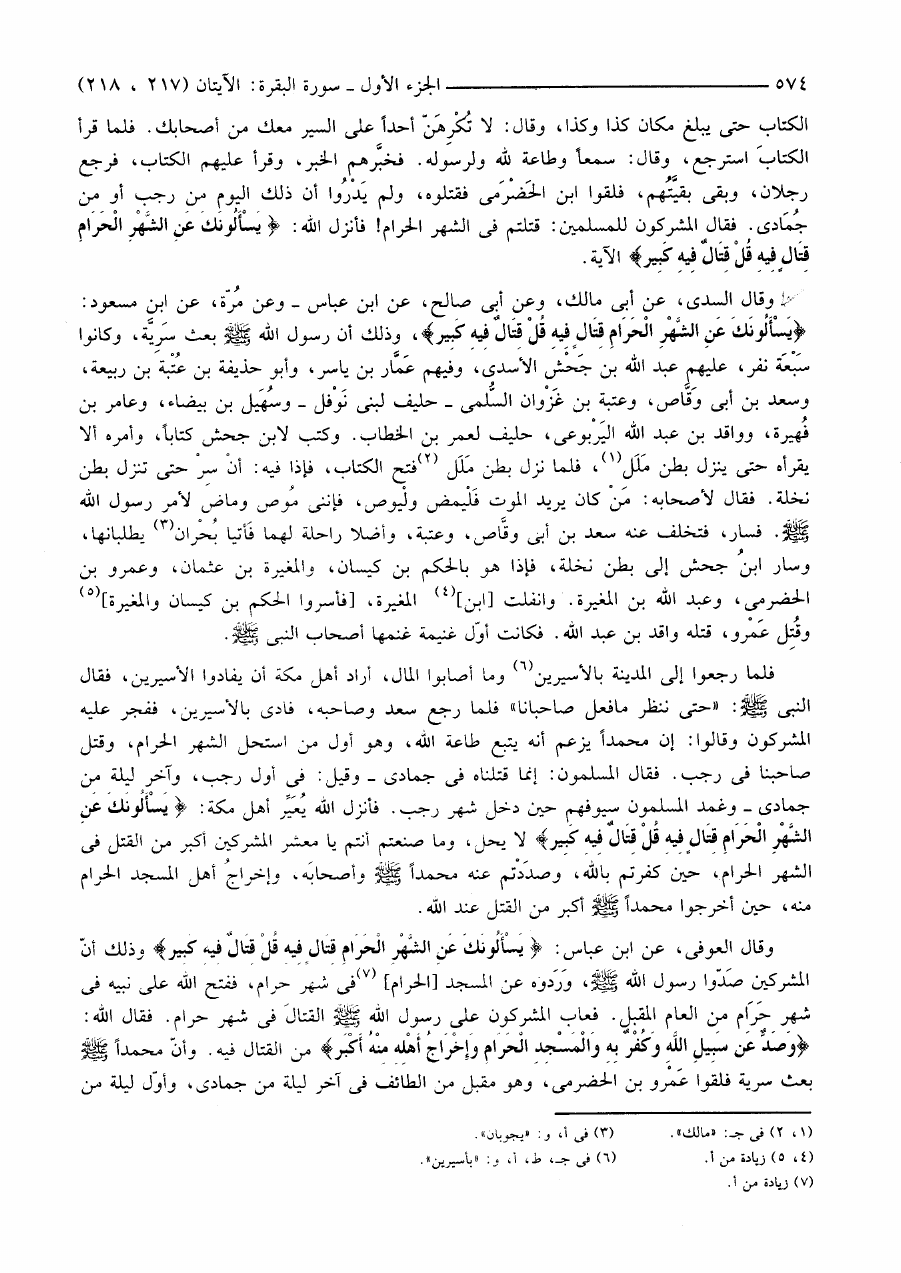 ٥٧٤ ــــــ الجزء الأول ـ سورة البقرة: الآيتان (٢١٧ ، ٢١٨)
الكتاب حتى يبلغ مكان كذا وكذا، وقال: لا تُكْرِهَنّ أحداً على السير معك من أصحابك. فلما قرأ
الكتابَ استرجع، وقال: سمعاً وطاعة لله ولرسوله. فخبَّرهم الخبر، وقرأ عليهم الكتاب، فرجع
رجلان، وبقى بقيَّتُهم، فلقوا ابن الحَضْرَمى فقتلوه، ولم يَدْرُوا أن ذلك اليوم من رجب أو من
جُمَادى. فقال المشركون للمسلمين: قتلتم فى الشهر الحرام! فأنزل الله: ﴿ يَسْأَلُونَكَ عَنِ الشَّهْرِ الْحَرَامِ
قِتَالٍ فِيهِ قُلْ قِتَالٌ فِيهِ كَبِير﴾ الآية.
وقال السدى، عن أبى مالك، وعن أبى صالح، عن ابن عباس ـ وعن مُرّة، عن ابن مسعود:
﴿يَسْأَلُونَكَ عَنِ الشَّهْرِ الْحَرَامِ قِتَالٍ فِيهِ قُلْ قِتَالٌ فِيهِ كَبِير﴾، وذلك أن رسول الله ﷺ بعث سَرِيَّة، وكانوا
سَبْعَة نفر، عليهم عبد الله بن جَحْش الأسدى، وفيهم عَمَّار بن ياسر، وأبو حذيفة بن عُتْبَة بن ربيعة،
وسعد بن أبى وَقَّاص، وعتبة بن غَزْوان السُّلمى ـ حليف لبنى نَوْفل ـ وسُهَيل بن بيضاء، وعامر بن
فُهيرة، وواقد بن عبد الله اليَرْبوعى، حليف لعمر بن الخطاب. وكتب لابن جحش كتاباً، وأمره ألا
يقرأه حتى ينزل بطن مَلَل(١)، فلما نزل بطن مَلَل (٢)فتح الكتاب، فإذا فيه: أنْ سِرْ حتى تنزل بطن
نخلة. فقال لأصحابه: مَنْ كان يريد الموت فَلْيمض ولْيوص، فإننى مُوص وماض لأمر رسول الله
ﷺ. فسار، فتخلف عنه سعد بن أبى وقَّاص، وعتبة، وأضلا راحلة لهما فَأتيا بُحْران(٣) يطلبانها،
وسار ابنُ جحش إلى بطن نخلة، فإذا هو بالحكم بن كيسان، والمغيرة بن عثمان، وعمرو بن
الحضرمى، وعبد الله بن المغيرة. وانفلت [ابن](٤) المغيرة، [فأسروا الحكم بن كيسان والمغيرة](٥)
وقُتِل عَمْرو، قتله واقد بن عبد الله. فكانت أوّل غنيمة غنمها أصحاب النبى ﷺ.
فلما رجعوا إلى المدينة بالأسيرين(٦) وما أصابوا المال، أراد أهل مكة أن يفادوا الأسيرين، فقال
النبى ﷺ: «حتى ننظر مافعل صاحبانا» فلما رجع سعد وصاحبه، فادى بالأسيرين، ففجر عليه
المشركون وقالوا: إن محمداً يزعم أنه يتبع طاعة الله، وهو أول من استحل الشهر الحرام، وقتل
صاحبنا فى رجب. فقال المسلمون: إنما قتلناه فى جمادى ـ وقيل: فى أول رجب، وآخر ليلة من
جمادى ـ وغمد المسلمون سيوفهم حين دخل شهر رجب. فأنزل الله يُعَيِّر أهل مكة: ﴿ يَسْأَلُونَكَ عَنِ
الشَّهْرِ الْحَرَامِ قِتَالٍ فِيهِ قُلْ قِتَالٌ فِيهِ كَبِير﴾ لا يحل، وما صنعتم أنتم يا معشر المشركين أكبر من القتل فى
الشهر الحرام، حين كفرتم بالله، وصدَدْتم عنه محمداً ﷺ وأصحابَه، وإخراجُ أهل المسجد الحرام
منه، حين أخرجوا محمداً ﷺ أكبر من القتل عند الله.
وقال العوفى، عن ابن عباس: ﴿ يَسْأَلُونَكَ عَنِ الشَّهْرِ الْحَرَامِ قِتَالٍ فِيهِ قُلْ قِتَالٌ فِيهِ كَبِير﴾ وذلك أنّ
المشركين صَدّوا رسول الله ﷺ، ورَدّوه عن المسجد [الحرام] (٧)فى شهر حرام، ففتح الله على نبيه فى
شهر حَرَام من العام المقبل. فعاب المشركون على رسول الله ﷺ القتالَ فى شهر حرام. فقال الله:
﴿وَصَدٌّ عَن سَبِيلِ اللَّهِ وَكُفْرٌ بِهِ وَالْمَسْجِدِ الْحَرَامِ وَإِخْرَاجُ أَهْلِهِ مِنْهُ أَكْبَر﴾ من القتال فيه. وأنّ محمداً ﷺ
بعث سرية فلقوا عَمْرو بن الحضرمى، وهو مقبل من الطائف فى آخر ليلة من جمادى، وأوّل ليلة من
(١، ٢) فى جـ: «مالك». (٣) فى أ، و: «يجوبان».
(٤، ٥) زيادة من أ. (٦) فى جـ، ط، أ، و: «بأسيرين».
(٧) زيادة من أ.